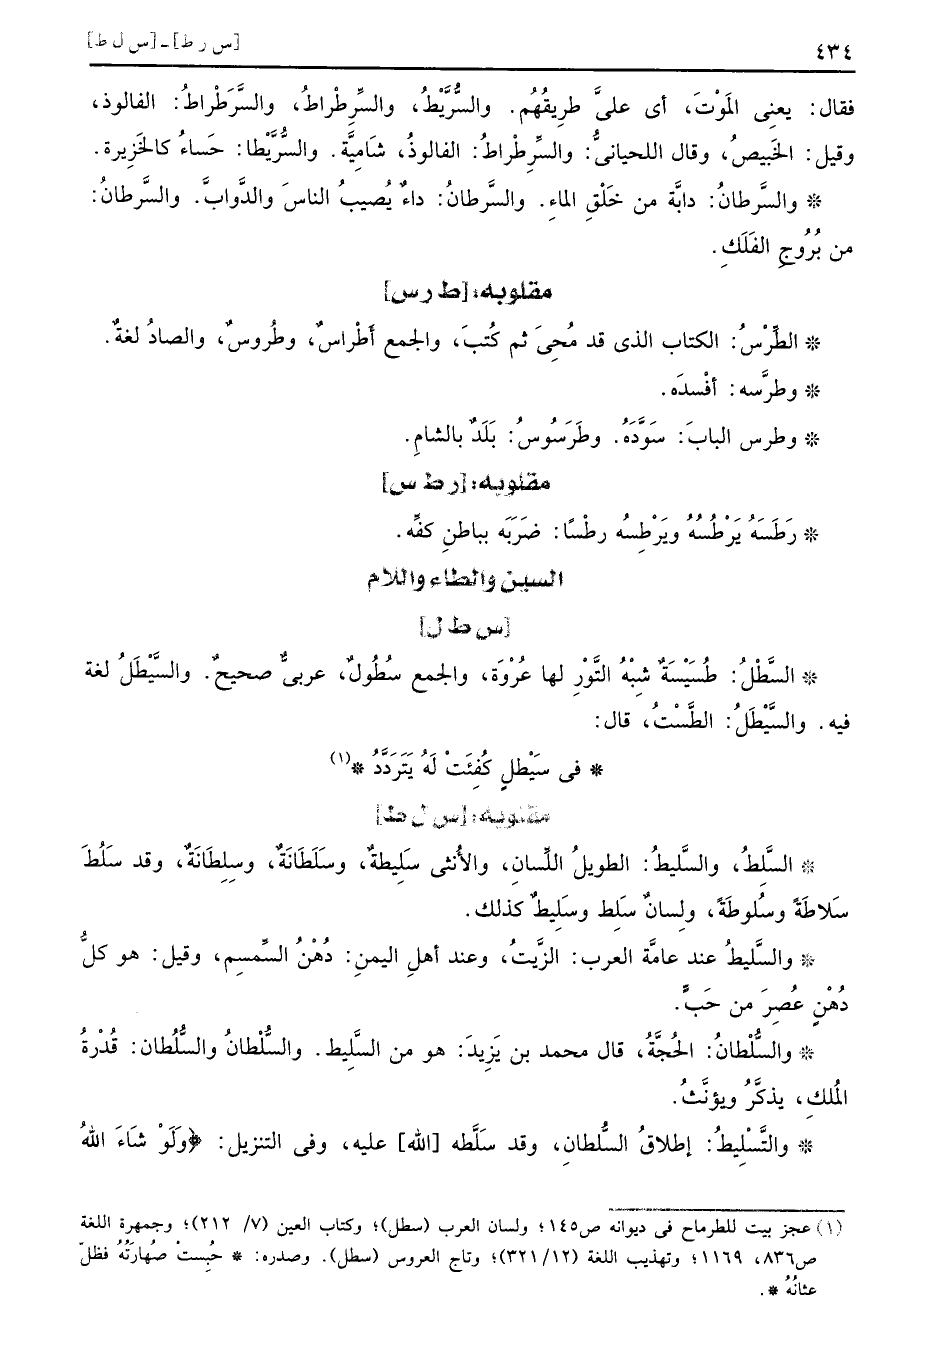 ٤٣٤
[س ر ط] ـ [س ل ط]
فقال: يعنى المَوْتَ، أى علىَّ طريقُهُم. والسُّرَّيْطُ، والسِّرِطْراطُ، والسَّرَطْراطُ: الفالوذ،
وقيل: الخَبيصُ، وقال اللحيانىُّ: والسِّرِطْراطُ: الفالوذُ، شَامِيَّة. والسُّرَّيْطا: حَساءُ كالخَزيرة.
* والسَّرطانُ: دابَّة من خَلْقِ الماءِ. والسَّرطانُ: داءٌ يُصيبُ الناسَ والدَّوابَّ. والسَّرطانُ:
من بُرُوجِ الفَلَكِ.
مقلوبه: [ط ر س]
* الطِّرْسُ: الكتاب الذى قد مُحِىَ ثم كُتبَ، والجمع أَطْراسٌ، وطُروسٌ، والصادُ لغةٌ.
* وطرَّسه: أفْسدَه.
* وطرس البابَ: سَوَّدَهُ. وطَرَسُوسُ: بَلَدٌ بالشامِ.
مقلوبه: [ر ط س]
* رَطَسَهُ يَرْطُسُهُ ويَرْطِسُه رطْسًا: ضَرَبَه بباطنِ كفِّه.
السين والطاء واللام
[س ط ل]
* السَّطْلُ: طُسَيْسَةٌ شبْهُ التَّوْرِ لها عُرْوَة، والجمع سُطُولٌ، عربىٌّ صحيحٌ. والسَّيْطَلُ لغة
فيه. والسَّيْطَلُ: الطَّسْتُ، قال:
* فى سَيْطلٍ كُفِئَتْ لَهُ يَتَرَدَّدُ *(١)
مقلوبه: [س ل ط]
* السَّلطُ، والسَّليطُ: الطويلُ اللِّسانِ، والأُنثى سَليطةٌ، وسَلَطَانَةٌ، وسِلِطَانَةٌ، وقد سَلُطَ
سَلاطَةً وسُلوطَةً، ولسانٌ سَلِط وسَليطٌ كذلك.
* والسَّليطُ عند عامَّة العرب: الزَّيتُ، وعند أهلِ اليمنِ: دُهْنُ السِّمسِم، وقيل: هو كلُّ
دُهْنٍ عُصِرَ من حَبٍّ.
* والسُّلْطانُ: الحُجَّةُ، قال محمد بن يَزِيدَ: هو من السَّليط. والسُّلْطانُ والسُّلُطان: قُدْرةُ
المُلكِ، يذكَّرُ ويؤنَّثُ.
* والتَّسْلِيطُ: إطلاقُ السُّلطانِ، وقد سَلَّطه [الله] عليه، وفى التنزيل: ﴿وَلَوْ شَاءَ اللهُ
(١) عجز بيت للطرماح فى ديوانه ص١٤٥؛ ولسان العرب (سطل)؛ وكتاب العين (٧/ ٢١٢)؛ وجمهرة اللغة
ص٨٣٦، ١١٦٩؛ وتهذيب اللغة (٣٢١/١٢)؛ وتاج العروس (سطل). وصدره: * حُبِستْ صُهارَتُهُ فظلّ
عثانُهُ *.